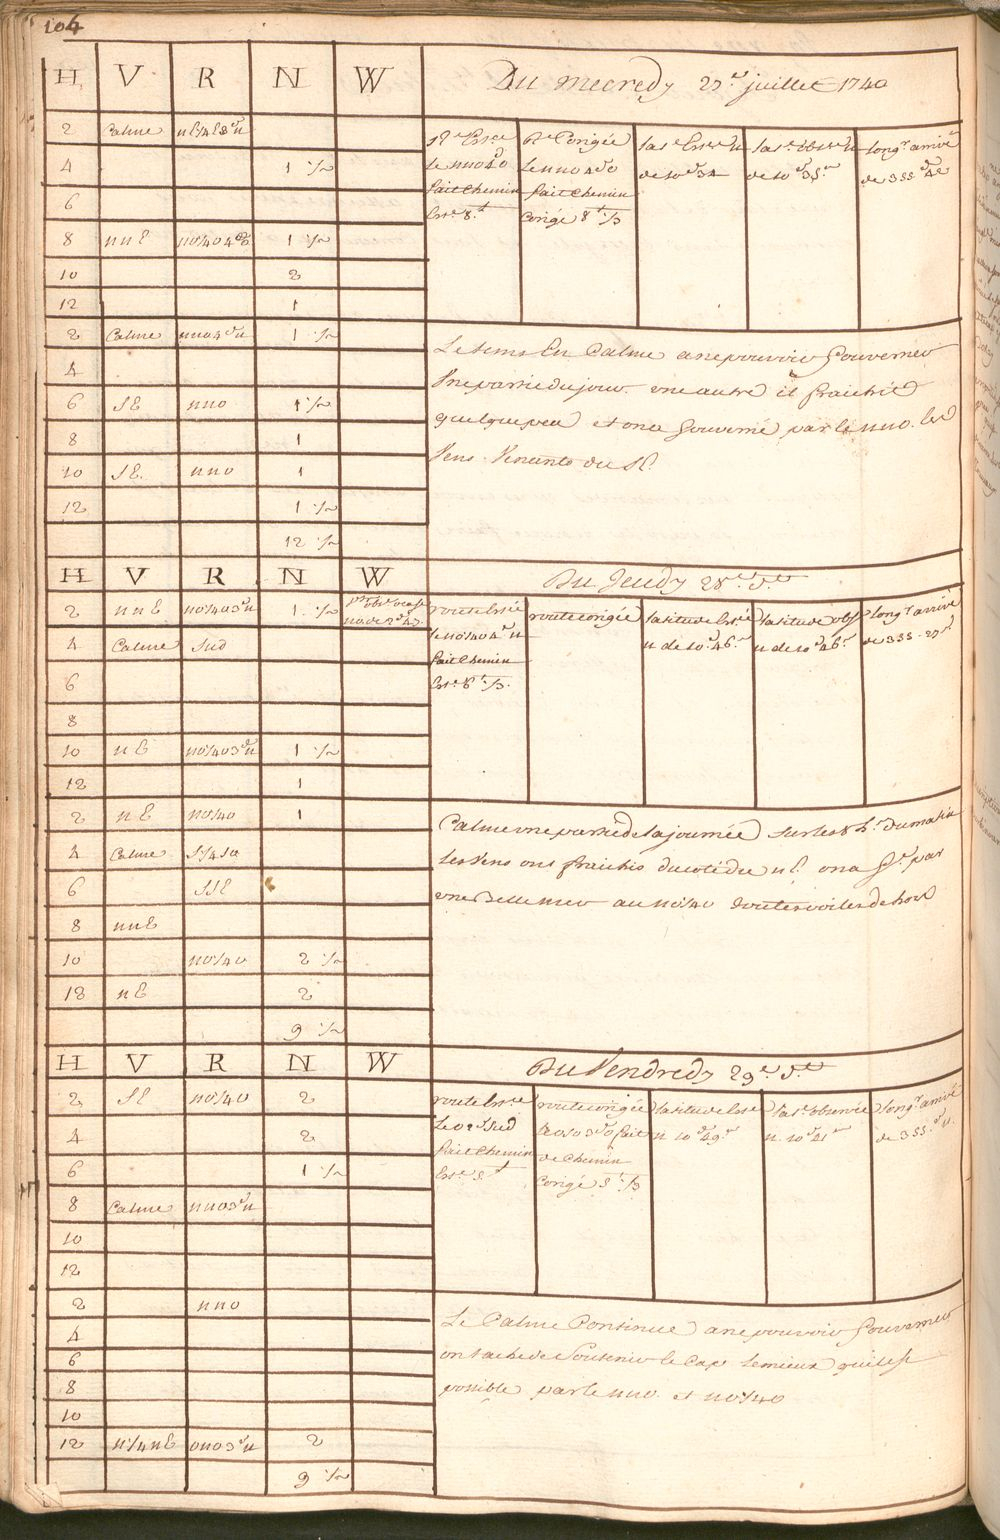 104
H V R N W Du mecredy 27.e juillet 1740
2 Calme
4 1 ½
6
8 nnE 1 ½
10 2
12 1
2 Calme nno4d n 1 ½
4
6 SE nno 1 ½
8 1
10 SE. nno 1
12 1 ½
12 ½
Re Essee
le nno4do
fait Chemin
Ese 8.t
Re Corigée
le nno4do
fait Chemin
Corigé 8t ⅓
late Essee n
de 10d 34
late observe n
de 10d 35m
longr arrivé
de 355d 42
Le tems En Calme a ne pouvoir Gouverner
Une partie du jour. une autre il fraichit
quelque peu et on a Gouverné par le nno. les
Vens Venants du SE.
H V R N W Du Jeudy 28.e d.t
2 nnE no¼o3d n 1 ½
4 Calme Sud
6
8
10 nE no¼o3d n 1 ½
12 1
2 nE no¼o 1
4 Calme S¼So
6 SSE
8 nnE
10 no¼o 2 ½
12 nE 2
9 ½
route Essée
le no¼o4d n
fait Chemin
Ese 6t ⅓.
route corigée
latitude Essée
n de 10d 46m
latitude obse
n de 10d 46m
longr arrivé
de 355 - 27m
Calme une partie de la journée sur les 8 hr. du matin
les Vens ont fraichis du coté du nE. on a Gr. par
une Belle mer au no¼o toutes voiles dehors
H V R N W Du Vendredy 29.e d.t
2 SE no¼o 2
4 2
6 1 ½
8 Calme nno3d n
10
12
2 nno
4
6
8
10
12 n¼nE ono3d n 2
9 ½
route Essée
fait Chemin
Ese 5t
route corigée
fait
de Chemin
Corigé 5t ⅓
latitude Esse
n 10d 49m
late observée
n. 10d 41m
longr arrivé
de 355.d 11.
Le Calme Continue a ne pouvoir Gouverner
on tache de Soutenir le Cap le mieux qu'il est
possible par le nno. et no¼o